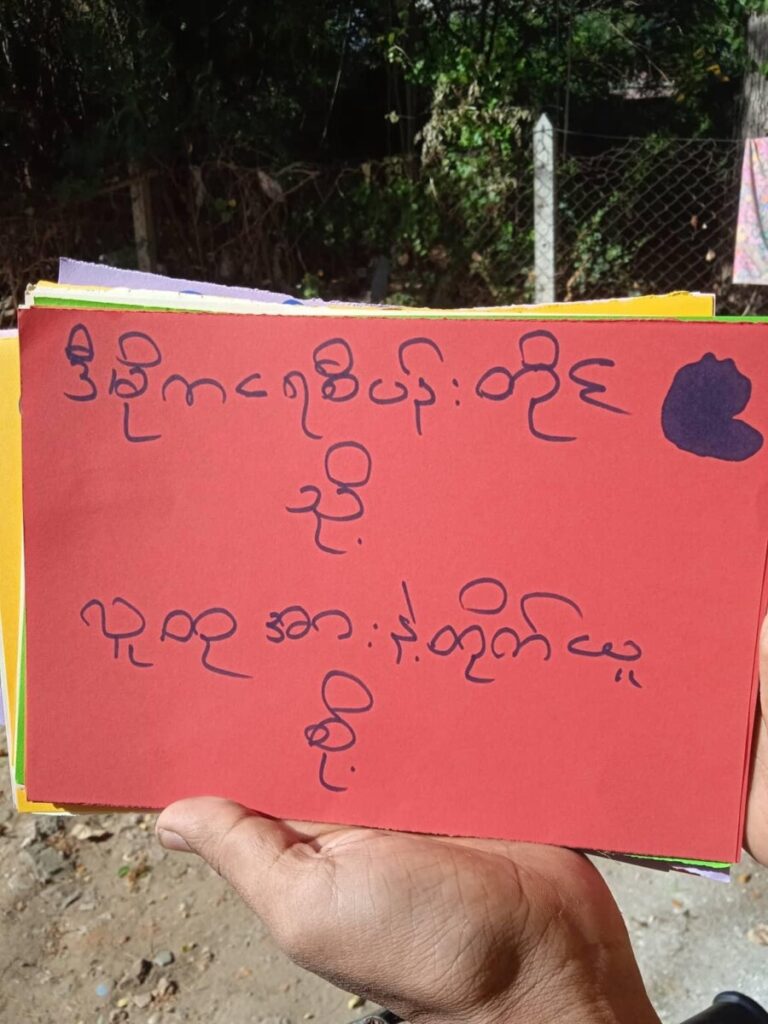 ဒီမိုကရေစီပန်းတိုင်
သို့
လူထုအားနဲ့တိုက်ယူ
စို့